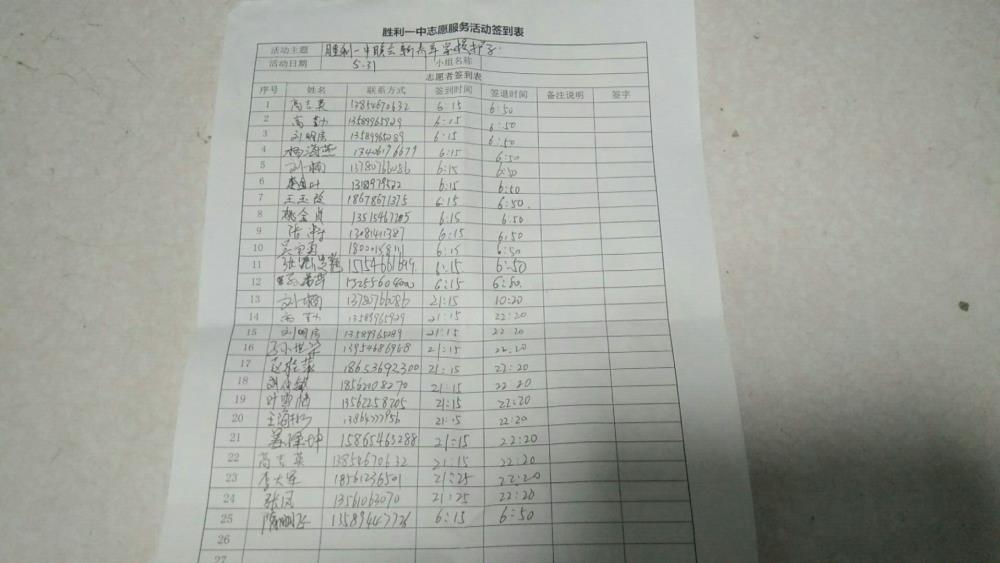 胜利一中志愿服务活动签到表
活动主题 胜利一中联合新青年学校护学
活动日期 5.31 小组名称
志愿者签到表
序号 姓名 联系方式 签到时间 签退时间 备注说明 签字
1 高吉英 13854670632 6:15 6:50
2 高勤 13589965929 6:15 6:50
3 刘明房 13589965289 6:15 6:50
4 杨海燕 13406196679 6:15 6:50
5 刘楠 13780766086 6:15 6:50
6 6:15 6:50
7 18678671375 6:15 6:50.
8 姚金贞 13515467205 6:15 6:50
9 张 13081411387 6:15 6:50
10 6:15 6:50
11 张 6:15 6:50
12 13255604000 6:15 6:50.
13 刘楠 13780766086 21:15 10:20
14 高勤 13589965929 21:15 22:20
15 刘明房 13589965289 21:15 22:20
16 13954686968 21:15 22:20
17 18653692300 21:15 22:20
18 18562108270 21:15 22:20
19 叶雪梅 13562258705 21:15 22:20
20 21:15 22:20
21 15865463288 21:15 22:20
22 高吉英 13854670632 21:15 22:20
23 李大军 18561236501 21:25 22:20
24 张凤 13561063070 21:25 22:20
25 13589447726 6:15 6:50
26
27